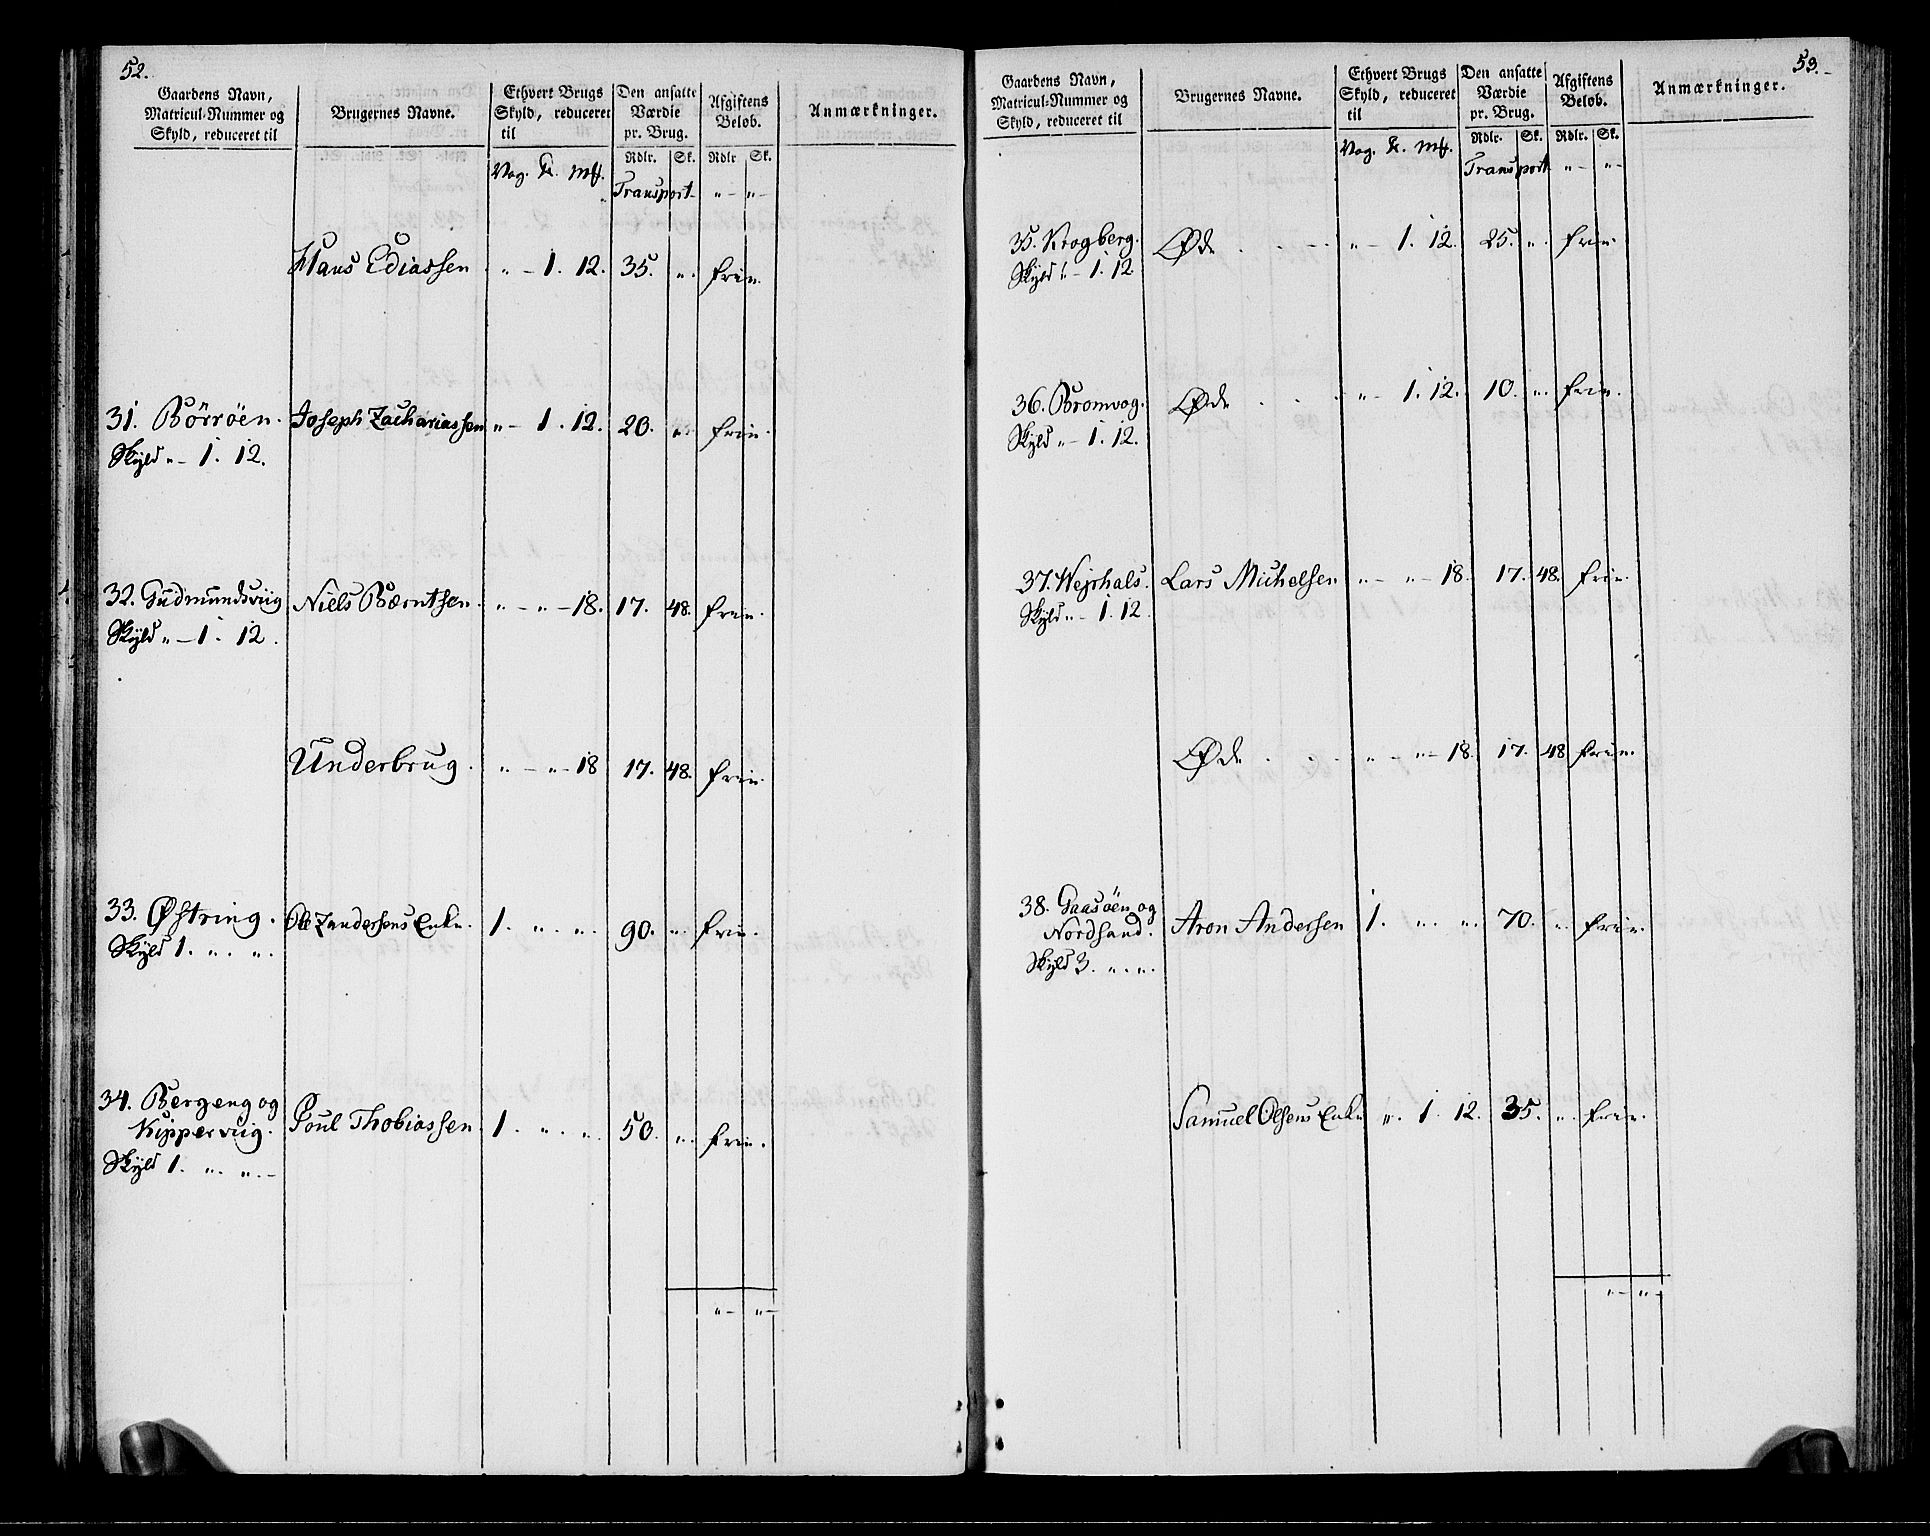 52.
Gaardens Navn, Matricul-Nummer og Skyld, reduceret til
Brugernes Navne.
Ethvert Brugs Skyld, reduceret til
Den ansatte Værdie pr. Brug.
Afgiftens Beløb.
Anmærkninger.
Rdlr. Sk. Rdlr Sk.
Vog. Mk.
Transport „ – „ –
Hans Ediassen „ – 1. 12. 35. „ frie.
31. Börröen. Joseph Zachariassen „ – 1. 12. 20. „ frie.
Skyld „ – 1. 12.
32. Gudmundsviig Niels Bærntsen. „ – „ – 18. 17. 48. frie.
Skyld „ – 1. 12.
Underbrug. „ – „ – 18 17. 48. frie.
33. Østring. Ole Zandersens Enke. 1. „ „ 90. „ frie.
Skyld 1. „ „
34. Bergeng og Poul Thobiassen 1. „ „ 50. „ frie.
Kipperviig.
Skyld 1. „ „ –
„ – „ –
53.
Gaardens Navn, Matricul-Nummer og Skyld, reduceret til
Brugernes Navne.
Ethvert Brugs Skyld, reduceret til
Den ansatte Værdie pr. Brug.
Afgiftens Beløb.
Anmærkninger.
Rdlr. Sk. Rdlr. Sk.
Vog. Mk.
Transport „ – „ –
35. Krogberg. Øde . . „ – 1. 12. 25. „ frie.
Skyld „ – 1. 12.
36. Bromvog. Øde . . . „ – 1. 12. 10. „ frie.
Skyld „ – 1. 12.
37. Wejrhals. Lars Michelsen „ – „ – 18. 17. 48. frie.
Skyld „ – 1. 12.
Øde . . . „ – „ – 18. 17. 48 frie.
38. Gaasöen og Aron Andersen 1. „ „ 70. „ frie.
Nordsand.
Skyld 3. „ „
Samuel Olsens Enke „ 1. 12. 35. „ frie.
„ – „ –